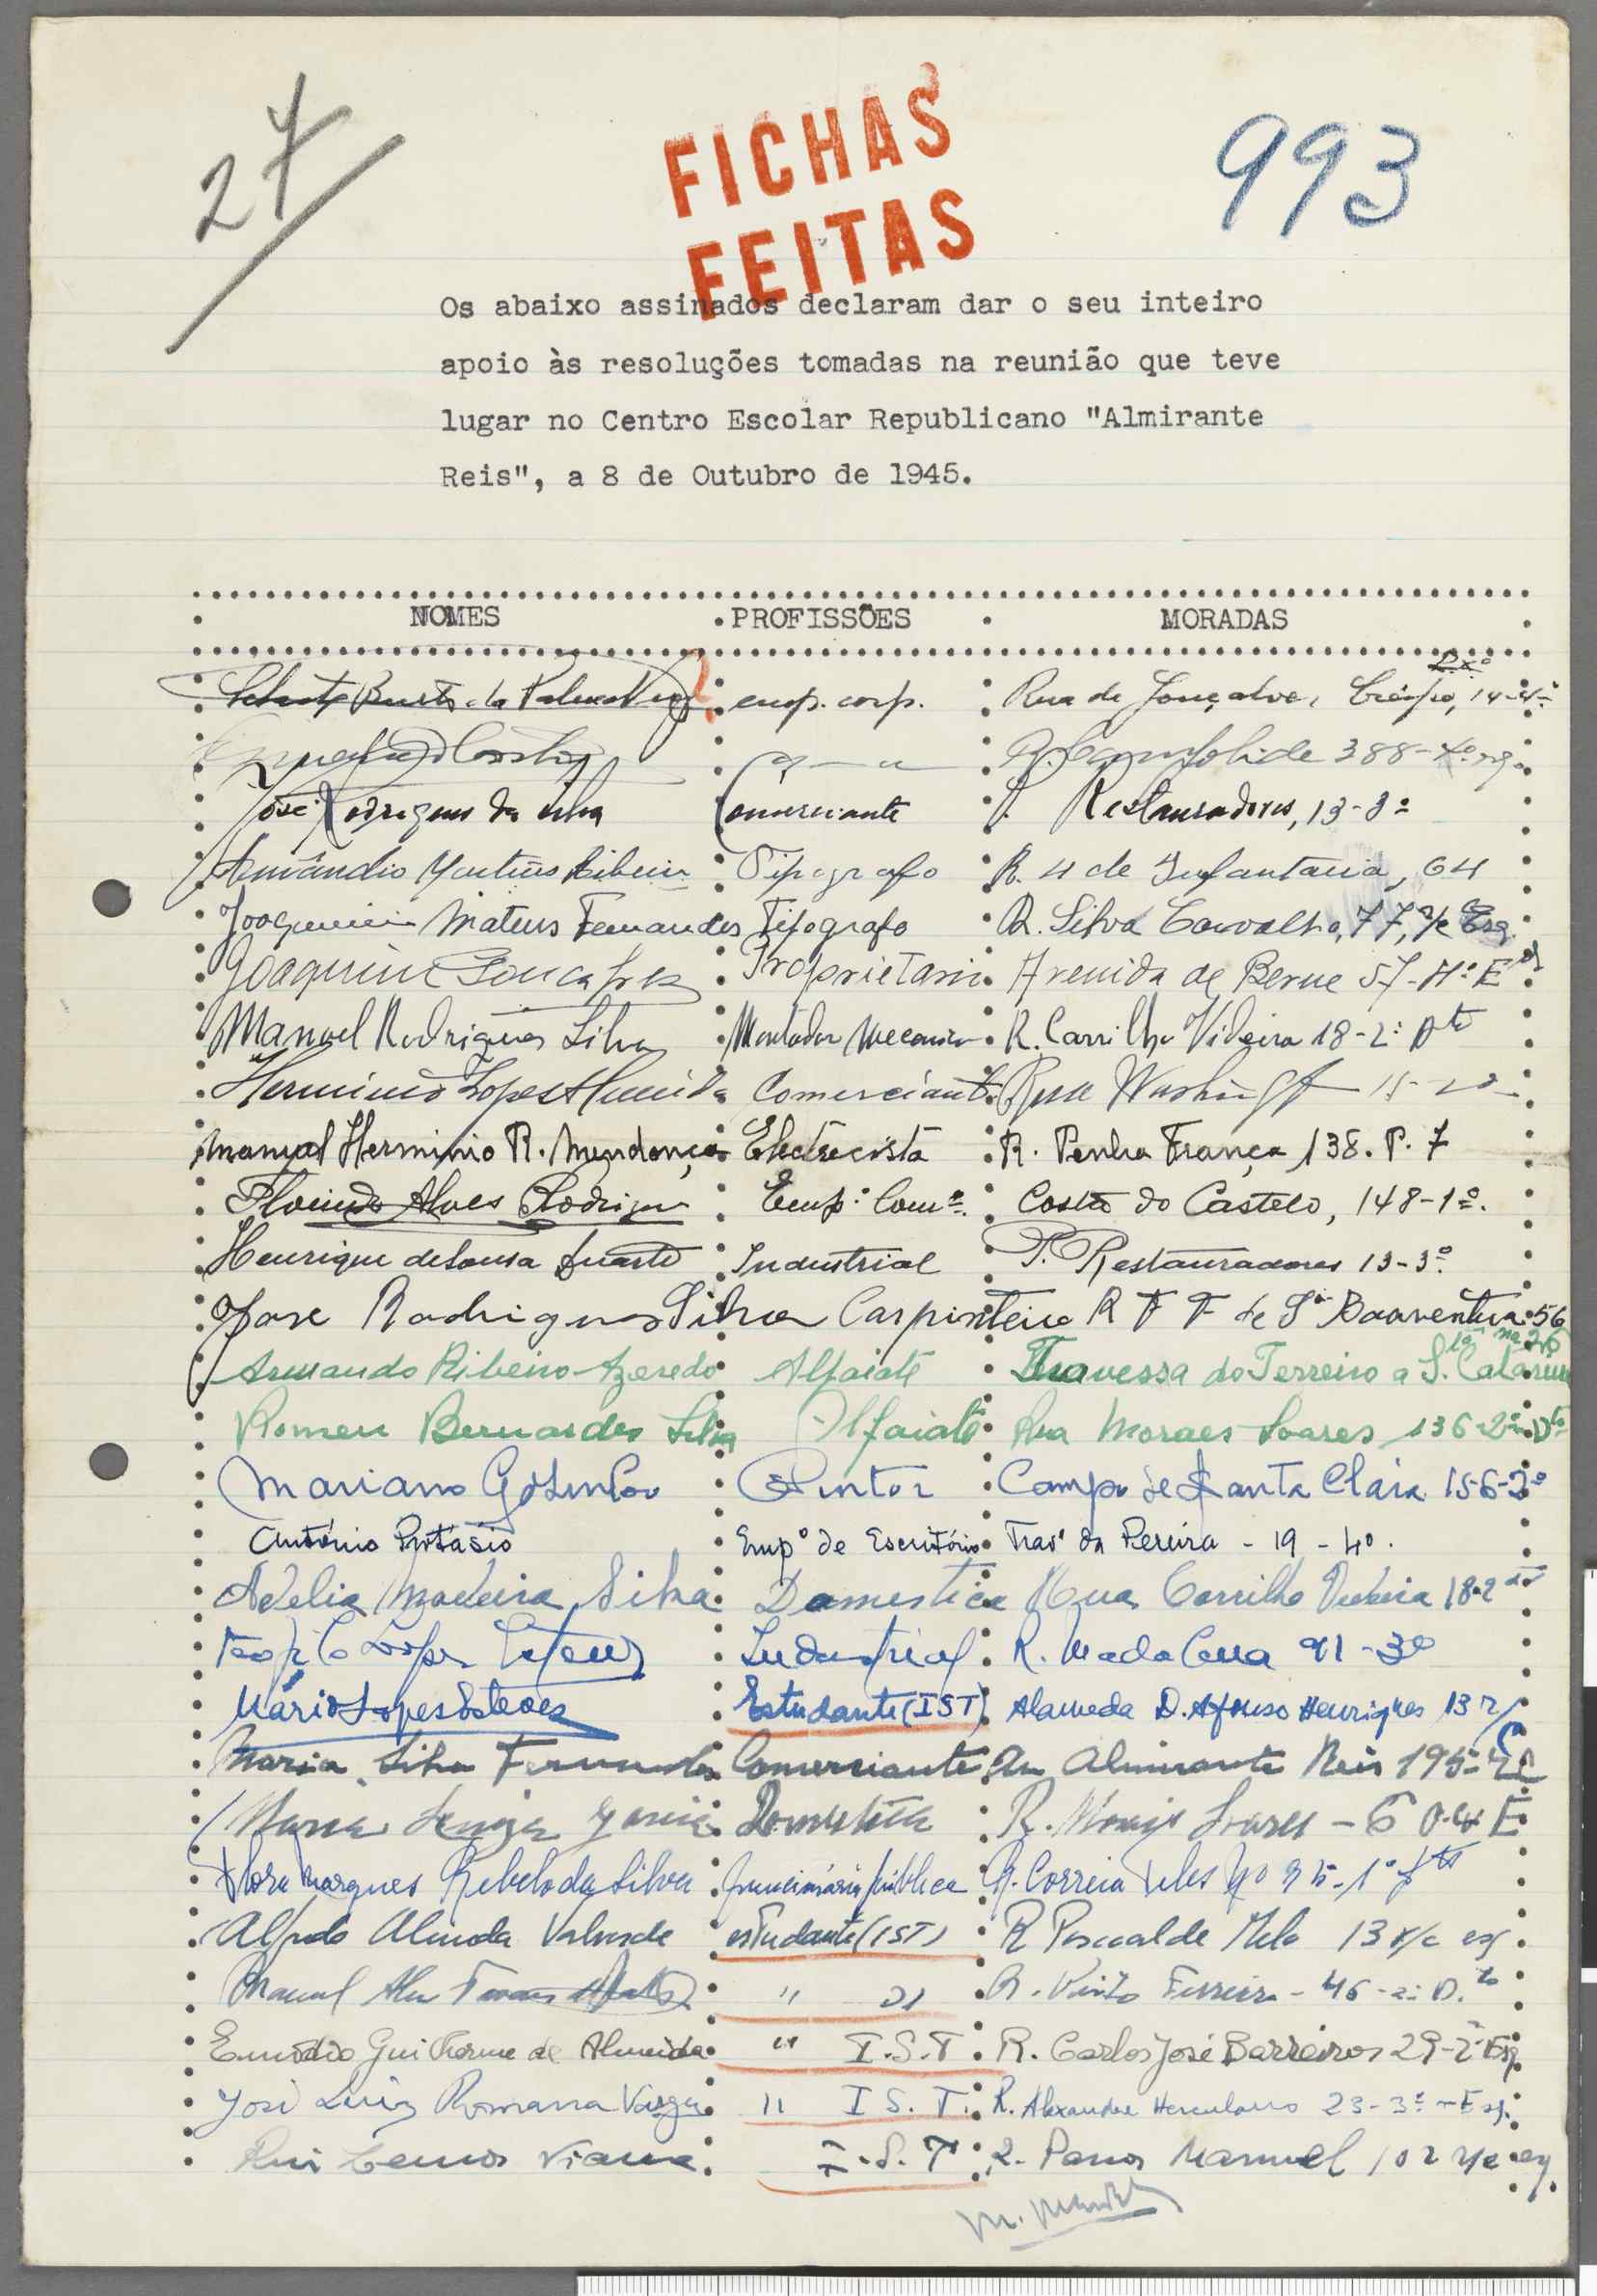 27
993
FICHAS
FEITAS
Os abaixo assinados declaram dar o seu inteiro
apoio às resoluções tomadas na reunião que teve
lugar no Centro Escolar Republicano "Almirante
Reis", a 8 de Outubro de 1945.
NOMES PROFISSÕES MORADAS
emp. corp. Rua de Gonçalves Crespo, 14-4º
R. Campolide 388-
José Rodrigues da Silva Comerciante P. Restauradores, 13-3º
Armândio Martins Ribeiro Tipografo R. 4 de Infantaria, 64
Joaquim Mateus Fernandes Tipografo R. Silva Carvalho, 77, r/c Esq.
Joaquim Gonçalves Proprietario Avenida de Berne 57-4º E
Manuel Rodrigues Silva Montador Mecanico R. Carrilho Videira 18-2º Dto
Herminio Lopes Almeida Comerciante Rua Washington
Manuel Herminio R. Mendonça Electrecista R. Penha França 138. P. 7
Florindo Alves Rodrigues Emp.º Com.al Costa do Castelo, 148-1º.
Henrique de Sousa Duarte Industrial P. Restauradores 13-3º.
José Rodrigues Silva Carpinteiro R F F de S. Boaventura 56
Armando Ribeiro Azeredo Alfaiate Travessa do Terreiro a S. Catarina nº 26
Romeu Bernardes Silva Alfaiate Rua Moraes Soares 136-2º Dto
Mariano Pintor Campo de Santa Clara 156-2º
António Protásio Emp.º de Escritório Trav. da Pereira - 19 - 4º.
Adelia Madeira Silva Domestica Rua Carrilho Videira 18-2º
Teofilo Lopes Esteves Industrial R. 91-3º
Mário Lopes Esteves Estudante (IST) Alameda D. Afonso Henriques 13 r/c
Maria Silva Fernandes Comerciante Av. Almirante Reis 195-
Maria Garcia Domestica R. Morais Soares - 6
Flora Marques Rebelo da Silva funcionária pública R. Correia Teles
Alfredo Almeida Valverde estudante (IST) R Pascoal de Melo 13 r/c esq.
Manuel " " R. Pinto Ferreira - 46-2º D.to
Emidio Guilherme de Almeida " I.S.T. R. Carlos José Barreiros 29-2º Esq.
José Luiz Romana " I S. T. R. Alexandre Herculano 23-3º - Esq.
Rui Lemos Viana I.S.T R. Passos Manuel 102 r/c esq.